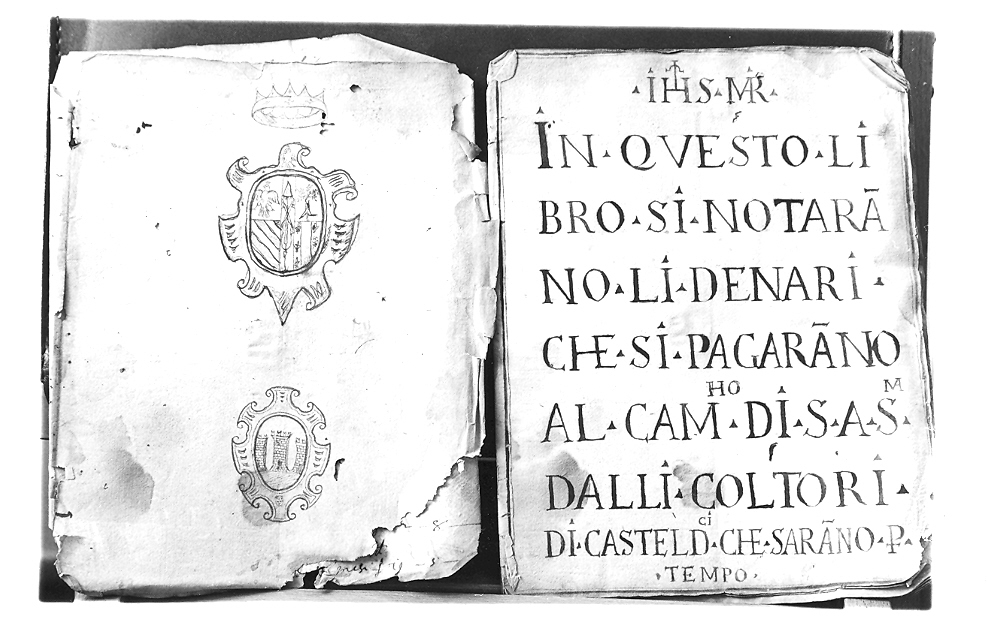 ·IHS·MR·
IN·QVESTO·LI
BRO·SI·NOTARĀ
NO·LI·DENARI·
CHE·SI·PAGARĀNO
AL·CAM^HO·DI·S·A·S^M·
DALLI·COLTORI·
DI·CASTELD^CI·CHE·SARĀNO·P·
·TEMPO·